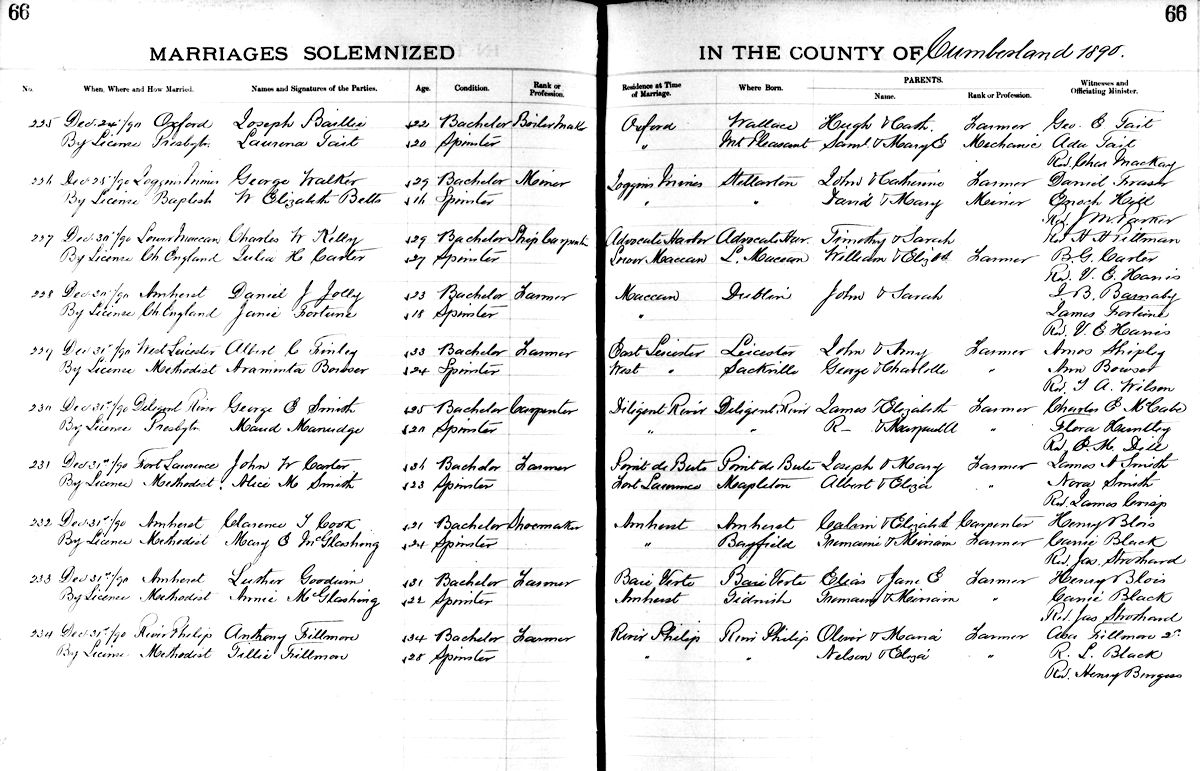 66 66
MARRIAGES SOLEMNIZED IN THE COUNTY OF Cumberland 1890.
PARENTS.
No. When, Where and How Married. Names and Signatures of the Parties. Age. Condition. Rank or Profession. Residence at Time of Marriage. Where Born. Name. Rank or Profession. Witnesses and Officiating Minister.
225 Dec 24"/90 Oxford Joseph Baillie 22 Bachelor Boilermaker Oxford Wallace Hugh & Cath. Farmer Geo. E Tait
By License Presbytn Laurena Tait 20 Spinster " Mt Pleasant Saml & Mary E Mechanic Ada Tait
Rev. Chas Mackay
226 Dec 25"/90 Joggins Mines George Walker 29 Bachelor Miner Joggins Mines Stellarton John & Catherine Farmer Daniel Fraser
By License Baptist W Elizabeth Betts 16 Spinster " " David & Mary Miner Enoch Hyll
Rev J M Parker
227 Dec 30"/90 Lower Maccan Charles W Kelly 29 Bachelor Ship Carpent Advocate Harbor Advocate Har. Timothy & Sarah Rev H H Pittman
By License Ch England Julia H. Carter 27 Spinster Lower Maccan L. Maccan William & Elizbd Farmer B. G. Carter
Rev. V. E. Harris
228 Dec 30"/90 Amherst Daniel J Jolly 23 Bachelor Farmer Maccan Dublin John & Sarah J. B. Barnaby
By License Ch England Janie Fortune 18 Spinster " James Fortune
Rev. V. E Harris
229 Dec 31"/90 West Leicester Albert C Finley 33 Bachelor Farmer East Leicester Leicester John & Amy Farmer Amos Shipley
By License Methodist Araminta Bowser 24 Spinster West " Sackville George & Charlotte " Ann Bowser
Rev. T A. Wilson
230 Dec 31st/90 Deligent River George E Smith 25 Bachelor Carpenter Diligent River Diligent River James & Elizabeth Farmer Charles E McCabe
By License Presbytn Maud 20 Spinster " " R— & " Flora Huntley
Rev. E. M. Dill
231 Dec 31st/90 Fort Laurence John W Carter 36 Bachelor Farmer Point de Bute Point de Bute Joseph & Mary Farmer James N Smith
By License Methodist Alice M Smith 23 Spinster Fort Laurence Mapleton Albert & Eliza " Nora Smith
Rev. James Crisp
232 Dec 31st/90 Amherst Clarence T Cook 21 Bachelor Shoemaker Amherst Amherst Calvin & Elizabeth Carpenter Henry Blois
By License Methodist Mary E McGlashing 24 Spinster " Bayfield Tremaine & Miriam Farmer Canie Black
Rev. Jas. Strothard
233 Dec 31st/90 Amherst Luther Goodwin 31 Bachelor Farmer Baie Verte Baie Verte Elias & Jane E Farmer Henry Blois
By License Methodist Annie McGlashing 22 Spinster Amherst Tidnish Tremaine & Miriam " Canie Black
Rev. Jas Strothard
234 Dec 31st/90 River Philip Anthony Fillmore 34 Bachelor Farmer River Philip River Philip Oliver & Maria Farmer Asa Fillmore 2nd
By License Methodist Tillie Fillmore 28 Spinster " " Nelson & Eliza " R. L. Black
Rev. Henry Burgess